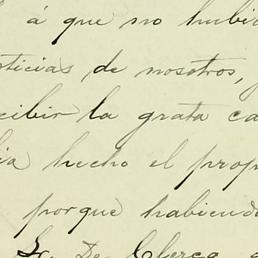 á que no hubie
oticias de nosotros, y
cibir la grata ca
ia hecho el prop
porque habiend
Sr. De Clercq